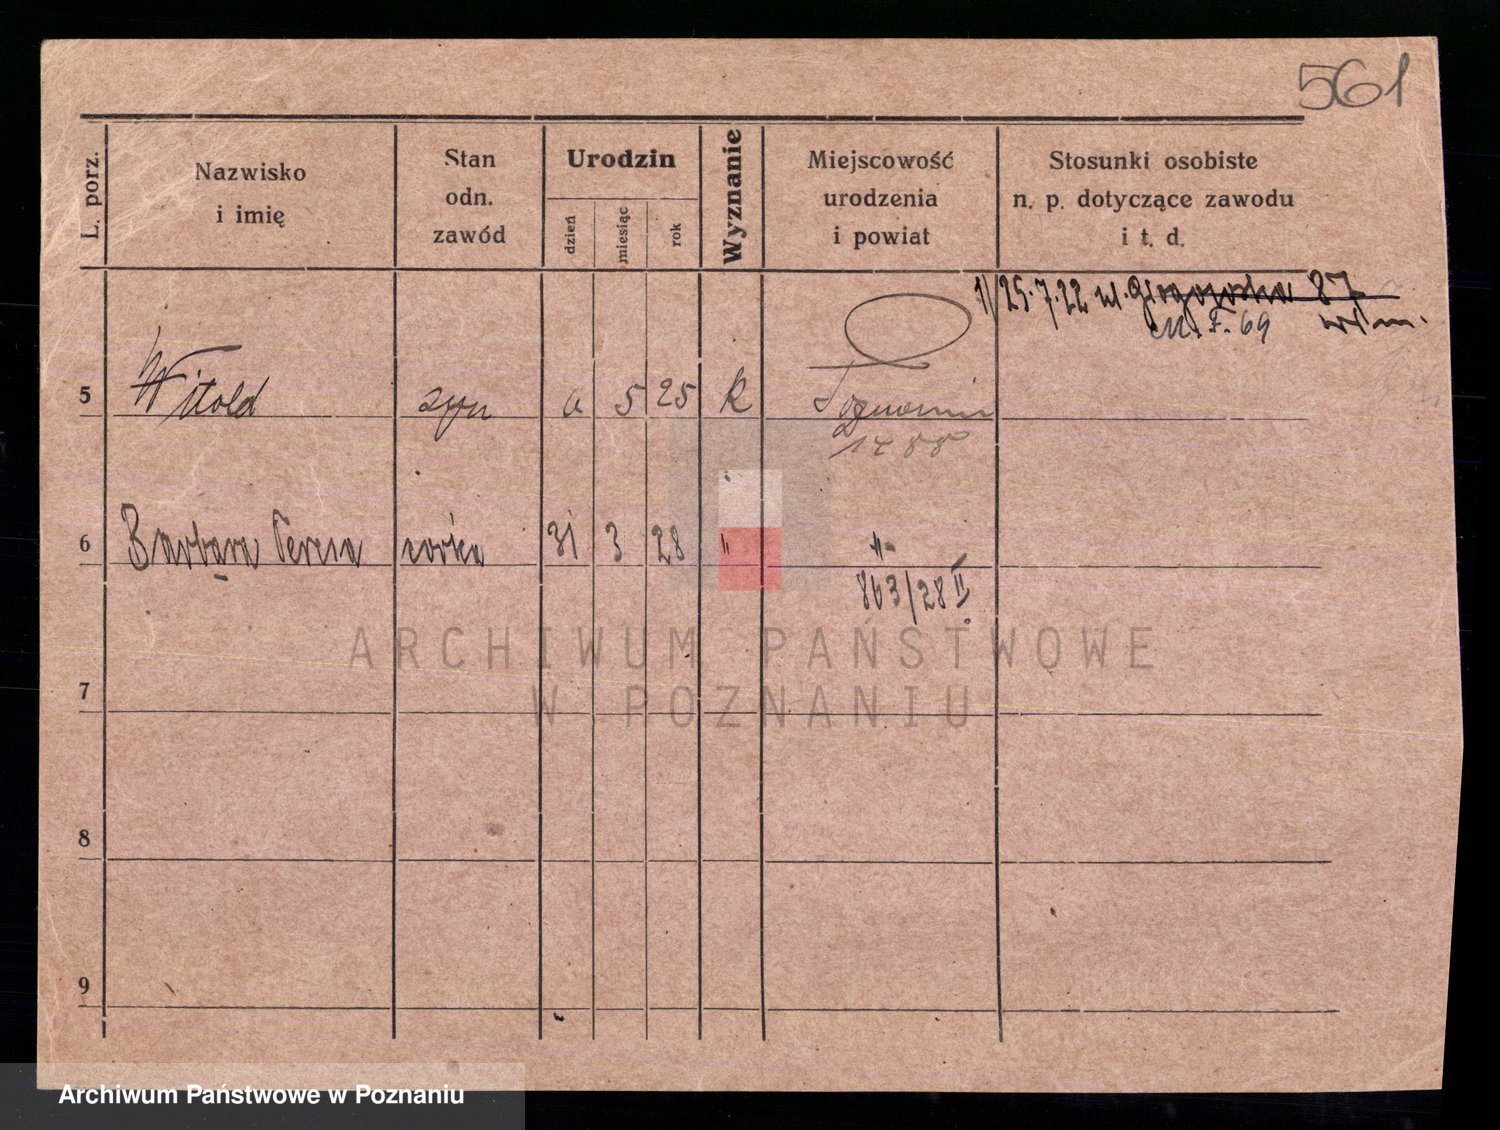 561
L. porz.
Nazwisko
i imię
Stan
odn.
zawód
Urodzin
dzień
miesiąc
rok
Wyznanie
Miejscowość
urodzenia
i powiat
Stosunki osobiste
n. p. dotyczące zawodu
i t. d.
1/25.7.22 ul. 87
F. 69
5 Witold syn 5 25 k
6 Barbara Teresa córka 31 3 28 " -"-
863/28 II
ARCHIWUM PAŃSTWOWE
W POZNANIU
7
8
9
Archiwum Państwowe w Poznaniu